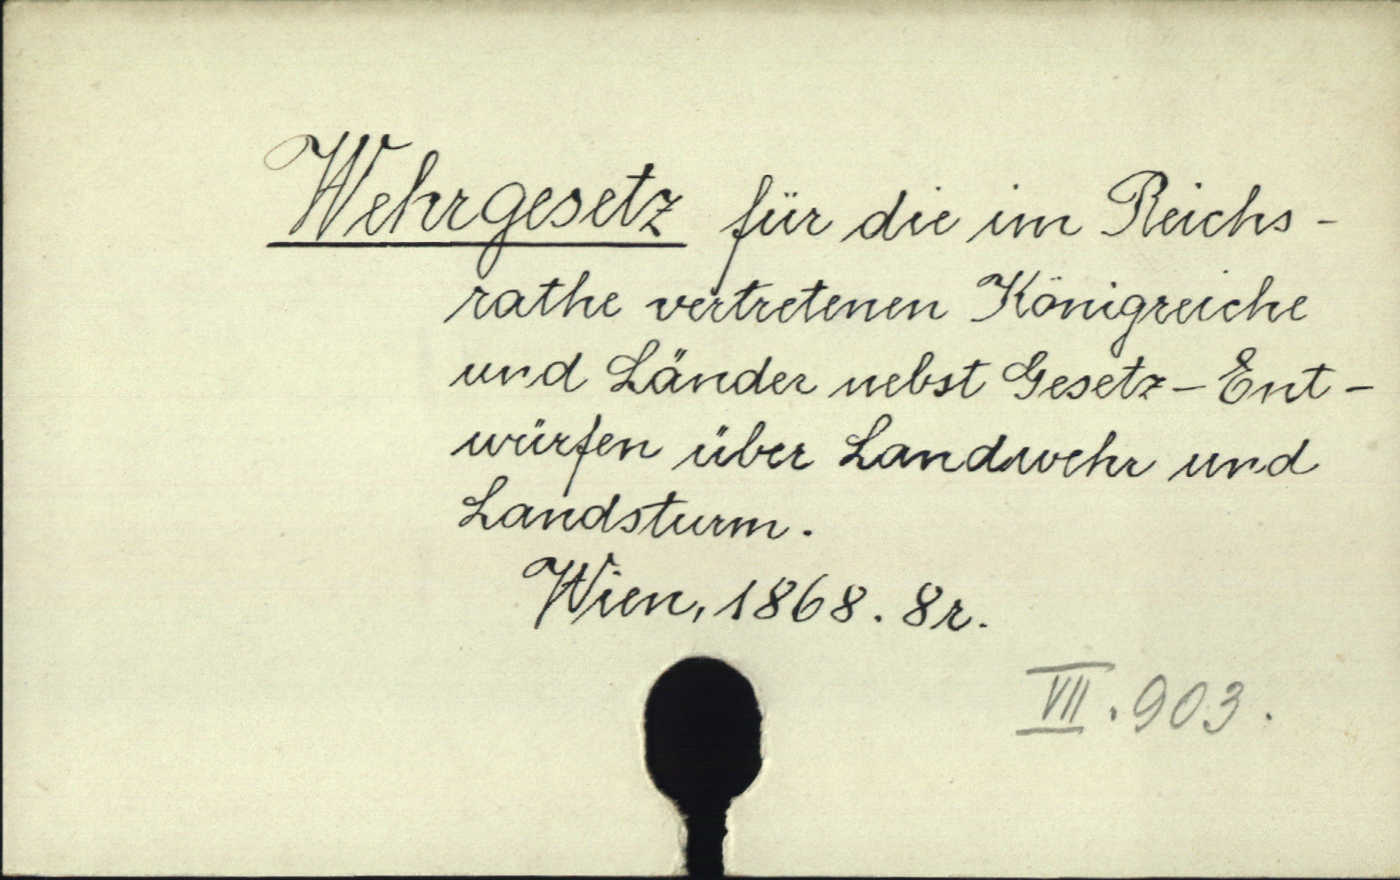 Wehrgesetz für die im Reichs-
rathe vertretenen Königreiche
und Länder nebst Gesetz-Ent-
würfen über Landwehr und
Landsturm.
Wien, 1868. 8r.
VII. 903.